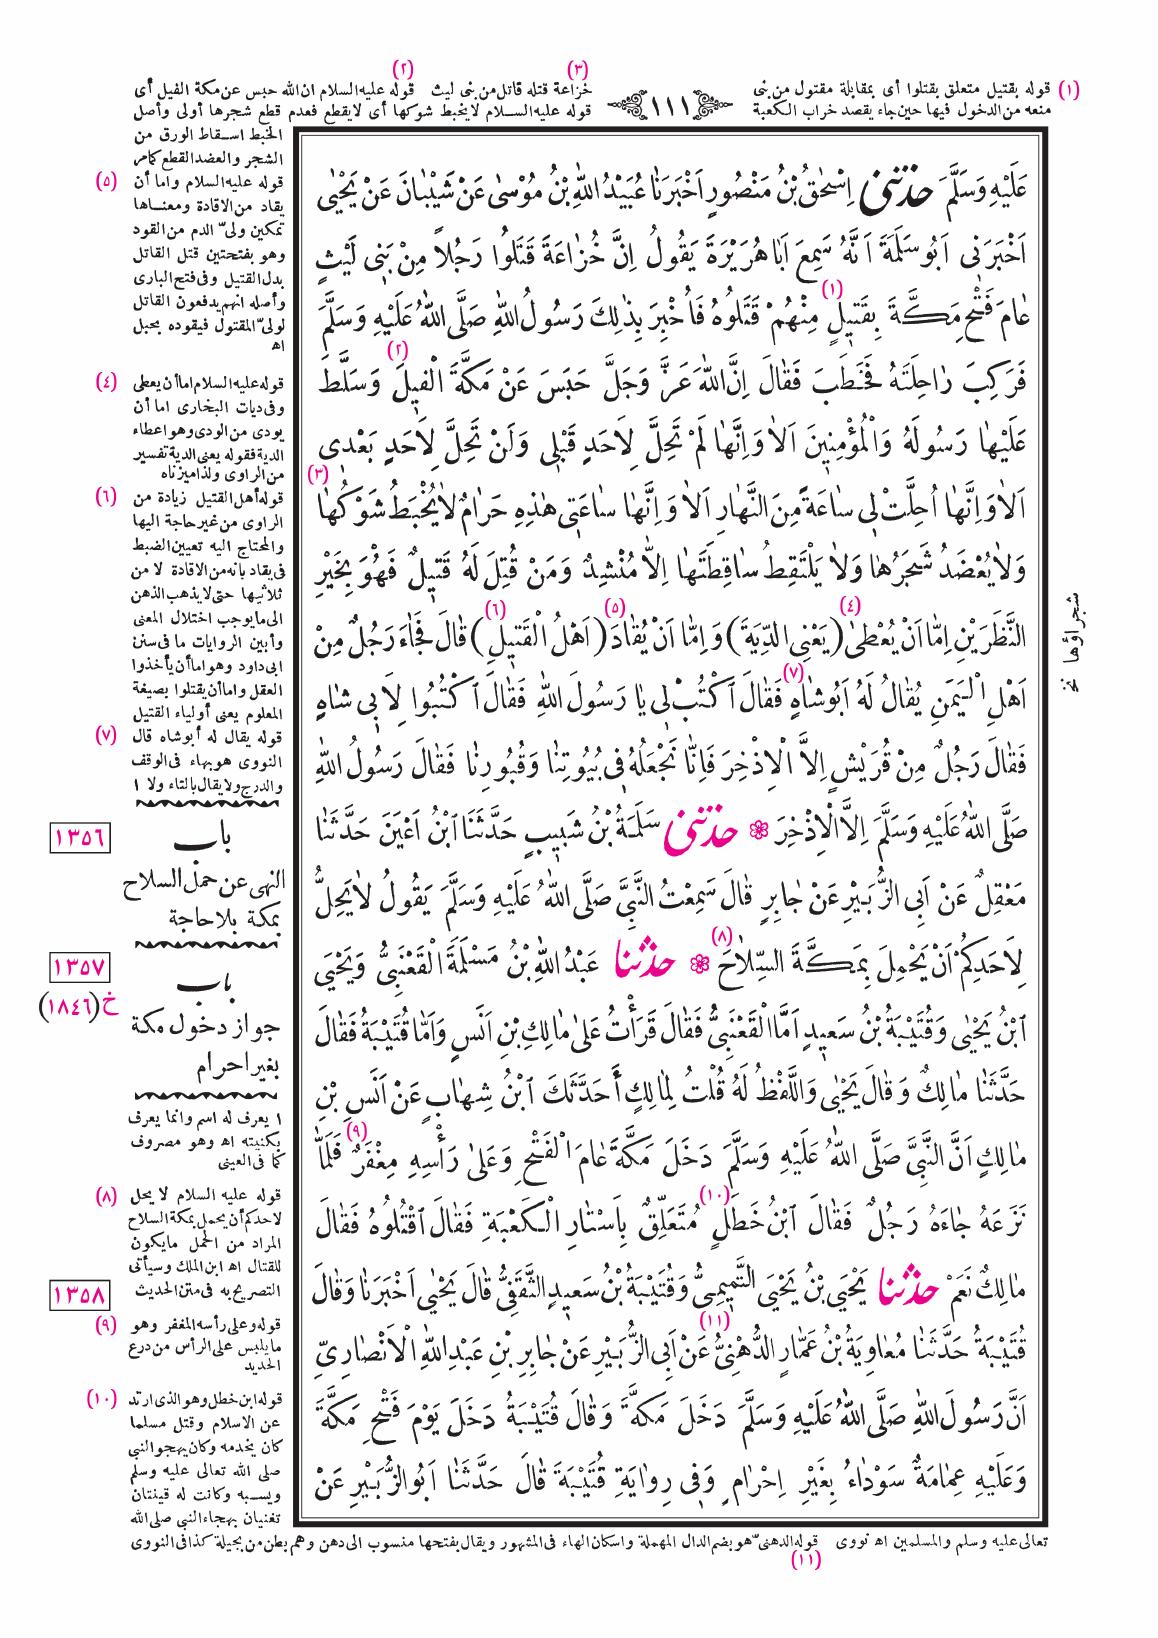 (١) قوله بقتيل متعلق بقتلوا أى بمقابلة مقتول من بنى
منعه من الدخول فيها حين جاء يقصد خراب الكعبة
١١١
(٣) (٢)
خزاعة قتله قاتل من بنى ليث قوله عليه السلام ان الله حبس عن مكة الفيل أى
قوله عليه السلام لا يخبط شوكها أى لا يقطع فعدم قطع شجرها أولى وأصل
الخبط اسقاط الورق من
الشجر والعضد القطع كامر
(٥) قوله عليه السلام واما أن
يقاد من الاقادة ومعناها
تمكين ولىّ الدم من القود
وهو بفتحتين قتل القاتل
بدل القتيل وفى فتح البارى
وأصله انهم يدفعون القاتل
لولىّ المقتول فيقوده بحبل
اه
(٤) قوله عليه السلام اما أن يعطى
وفى ديات البخارى اما أن
يودى من الودى وهو اعطاء
الدية فقوله يعنى الدية تفسير
من الراوى ولذا ميزناه
(٦) قوله أهل القتيل زيادة من
الراوى من غير حاجة اليها
والمحتاج اليه تعيين الضبط
فى يقاد بانه من الاقادة لا من
ثلاثيها حتى لا يذهب الذهن
الى ما يوجب اختلال المعنى
وأبين الروايات ما فى سنن
ابى داود وهو اما أن يأخذوا
العقل واما أن يقتلوا بصيغة
المعلوم يعنى أولياء القتيل
(٧) قوله يقال له أبوشاه قال
النووى هو بهاء فى الوقف
والدرج ولا يقال بالتاء ولا ١
١٣٥٦
باب
النهى عن حمل السلاح
بمكة بلا حاجة
١٣٥٧
خ (١٨٤٦)
باب
جواز دخول مكة
بغير احرام
١ يعرف له اسم وانما يعرف
بكنيته اه وهو مصروف
كما فى العينى
(٨) قوله عليه السلام لا يحل
لاحدكم أن يحمل بمكة السلاح
المراد من الحمل ما يكون
للقتال اه ابن الملك وسيأتى
التصريح به فى متن الحديث
١٣٥٨
(٩) قوله وعلى رأسه المغفر وهو
ما يلبس على الرأس من درع
الحديد
(١٠) قوله ابن خطل وهو الذى ارتد
عن الاسلام وقتل مسلما
كان يخدمه وكان يهجو النبى
صلى الله تعالى عليه وسلم
ويسبه وكانت له قينتان
تغنيان بهجاء النبى صلى الله
عَلَيْهِ وَسَلَّمَ حَدَّثَنِى اِسْحٰقُ بْنُ مَنْصُورٍ اَخْبَرَنَا عُبَيْدُ اللهِ بْنُ مُوْسٰى عَنْ شَيْبَانَ عَنْ يَحْيٰى
اَخْبَرَنى اَبُوسَلَمَةَ اَنَّهُ سَمِعَ اَبَا هُرَيْرَةَ يَقُولُ اِنَّ خُزَاعَةَ قَتَلُوا رَجُلاً مِنْ بَنِى لَيْثٍ
عَامَ فَتْحِ مَكَّةَ بِقَتِيلٍ (١) مِنْهُمْ قَتَلُوهُ فَاُخْبِرَ بِذٰلِكَ رَسُولُ اللهِ صَلَّى اللهُ عَلَيْهِ وَسَلَّمَ
فَرَكِبَ رَاحِلَتَهُ فَخَطَبَ فَقَالَ اِنَّ اللهَ عَزَّ وَجَلَّ حَبَسَ عَنْ مَكَّةَ الْفِيلَ (٢) وَسَلَّطَ
عَلَيْهَا رَسُولَهُ وَالْمُؤْمِنِينَ اَلاَ وَاِنَّهَا لَمْ تَحِلَّ لِاَحَدٍ قَبْلِى وَلَنْ تَحِلَّ لِاَحَدٍ بَعْدى
اَلاَ وَاِنَّهَا اُحِلَّتْ لِى سَاعَةً مِنَ النَّهَارِ اَلاَ وَاِنَّهَا سَاعَتِى هٰذِهِ حَرَامٌ لاَ يُخْبَطُ شَوْكُهَا (٣)
وَلاَ يُعْضَدُ شَجَرُهَا وَلاَ يَلْتَقِطُ سَاقِطَتَهَا اِلاَّ مُنْشِدٌ وَمَنْ قُتِلَ لَهُ قَتِيلٌ فَهُوَ بِخَيْرِ
النَّظَرَيْنِ اِمَّا اَنْ يُعْطٰى (٤) (يَعْنِى الدِّيَةَ) وَاِمَّا اَنْ يُقَادَ (٥) (اَهْلُ الْقَتِيلِ) (٦) قَالَ فَجَاءَ رَجُلٌ مِنْ
اَهْلِ الْيَمَنِ يُقَالُ لَهُ اَبُوشَاهٍ (٧) فَقَالَ اَكْتُبْ لِى يَا رَسُولَ اللهِ فَقَالَ اَكْتُبُوا لِاَبِى شَاهٍ
فَقَالَ رَجُلٌ مِنْ قُرَيْشٍ اِلاَّ الْاِذْخِرَ فَاِنَّا نَجْعَلُهُ فِى بُيُوتِنَا وَقُبُورِنَا فَقَالَ رَسُولُ اللهِ
صَلَّى اللهُ عَلَيْهِ وَسَلَّمَ اِلاَّ الْاِذْخِرَ ❁ حَدَّثَنِى سَلَمَةُ بْنُ شَبِيبٍ حَدَّثَنَا ابْنُ اَعْيَنَ حَدَّثَنَا
مَعْقِلٌ عَنْ اَبِى الزُّبَيْرِ عَنْ جَابِرٍ قَالَ سَمِعْتُ النَّبِىَّ صَلَّى اللهُ عَلَيْهِ وَسَلَّمَ يَقُولُ لاَ يَحِلُّ
لِاَحَدِكُمْ اَنْ يَحْمِلَ بِمَكَّةَ السِّلاَحَ (٨) ❁ حَدَّثَنَا عَبْدُ اللهِ بْنُ مَسْلَمَةَ الْقَعْنَبِىُّ وَيَحْيَى
ابْنُ يَحْيٰى وَقُتَيْبَةُ بْنُ سَعِيدٍ اَمَّا الْقَعْنَبِىُّ فَقَالَ قَرَأْتُ عَلٰى مَالِكِ بْنِ اَنَسٍ وَاَمَّا قُتَيْبَةُ فَقَالَ
حَدَّثَنَا مَالِكٌ وَقَالَ يَحْيٰى وَاللَّفْظُ لَهُ قُلْتُ لِمَالِكٍ أَحَدَّثَكَ ابْنُ شِهَابٍ عَنْ اَنَسِ بْنِ
مَالِكٍ اَنَّ النَّبِىَّ صَلَّى اللهُ عَلَيْهِ وَسَلَّمَ دَخَلَ مَكَّةَ عَامَ الْفَتْحِ وَعَلٰى رَأْسِهِ مِغْفَرٌ (٩) فَلَمَّا
نَزَعَهُ جَاءَهُ رَجُلٌ فَقَالَ ابْنُ خَطَلٍ (١٠) مُتَعَلِّقٌ بِاَسْتَارِ الْكَعْبَةِ فَقَالَ اقْتُلُوهُ فَقَالَ
مَالِكٌ نَعَمْ حَدَّثَنَا يَحْيَى بْنُ يَحْيَى التَّمِيمِىُّ وَقُتَيْبَةُ بْنُ سَعِيدٍ الثَّقَفِىُّ قَالَ يَحْيٰى اَخْبَرَنَا وَقَالَ
قُتَيْبَةُ حَدَّثَنَا مُعَاوِيَةُ بْنُ عَمَّارٍ الدُّهْنِىُّ (١١) عَنْ اَبِى الزُّبَيْرِ عَنْ جَابِرِ بْنِ عَبْدِ اللهِ الْاَنْصَارِىِّ
اَنَّ رَسُولَ اللهِ صَلَّى اللهُ عَلَيْهِ وَسَلَّمَ دَخَلَ مَكَّةَ وَقَالَ قُتَيْبَةُ دَخَلَ يَوْمَ فَتْحِ مَكَّةَ
وَعَلَيْهِ عِمَامَةٌ سَوْدَاءُ بِغَيْرِ اِحْرَامٍ وَفِى رِوَايَةِ قُتَيْبَةَ قَالَ حَدَّثَنَا اَبُو الزُّبَيْرِ عَنْ
شجراؤها
تعالى عليه وسلم والمسلمين اه نووى قوله الدهنىّ هو بضم الدال المهملة واسكان الهاء فى المشهور ويقال بفتحها منسوب الى دهن وهم بطن من بجيلة كذا فى النووى
(١١)